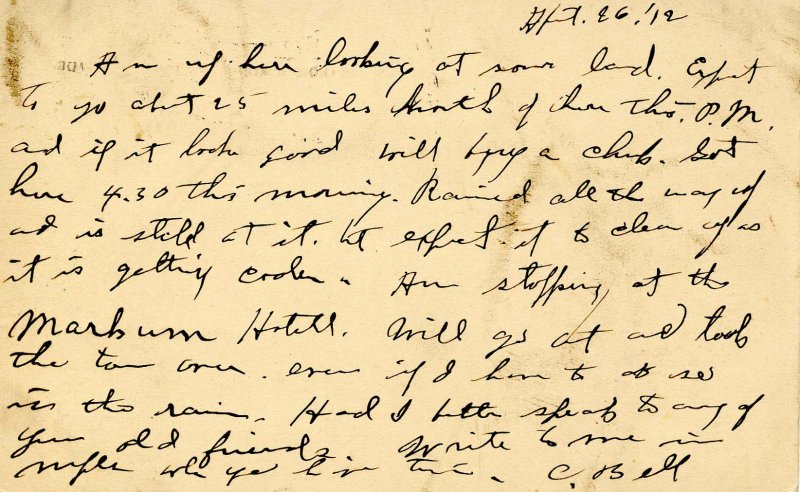 Sept. 26. '12
Am up here looking at some land. Expect
to go about 25 miles North of here this. P.M.
and if it looks good will buy a chunk. Got
here 4.30 this morning. Rained all the way up
and is still at it. but expect it to clear up as
it is getting cooler. Am stopping at the
Hotell. Will go out and look
the town over. even if I have to do so
in the rain. Had I better speak to any of
your old friends. Write to me in
when you have time. C. Bell